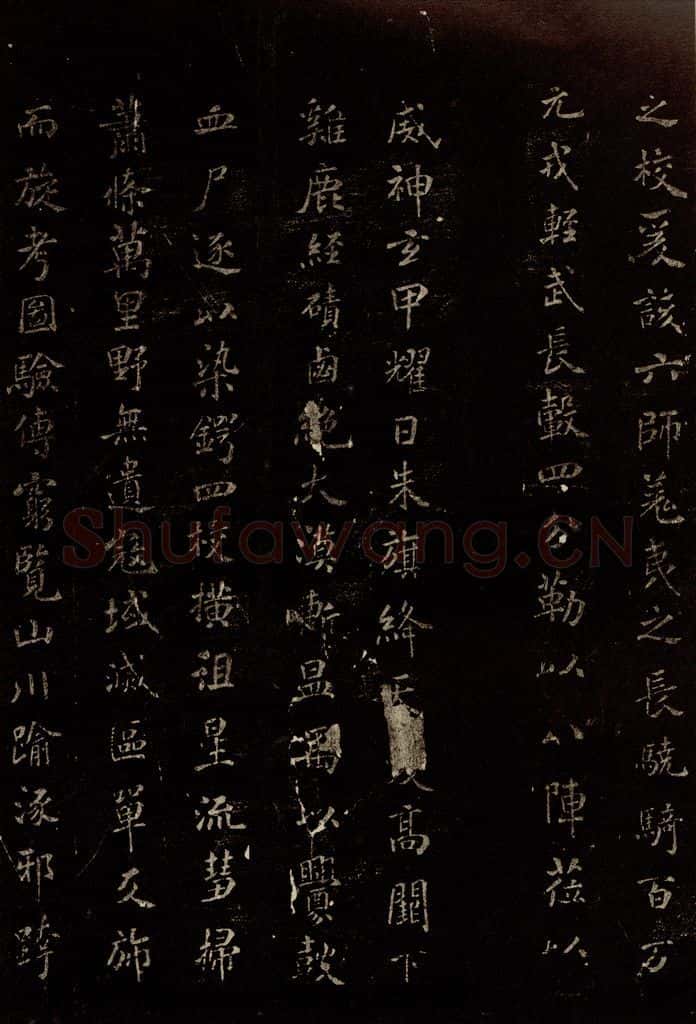 之校爰該六師蒐夷之長驍騎百万
元戎輕武長轂四分勒以八陣蒞以
威神玄甲耀日朱旗絳天高闕下
雞鹿經磧鹵絶大漠斬温禺以釁鼓
血尸逐以染鍔四校横徂星流彗掃
蕭條萬里野無遺寇域滅區單反旆
而旋考圖驗傳窮覽山川踰涿邪跨
Shufawang.CN